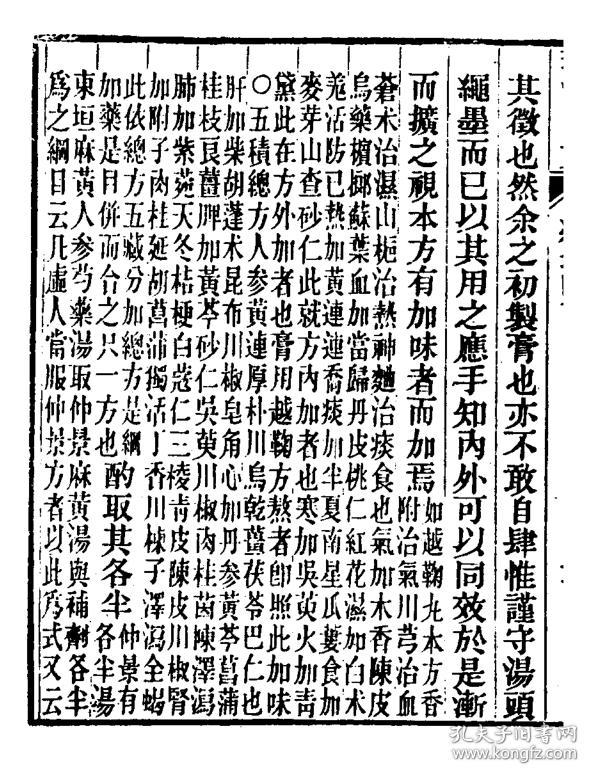 其徵也然余之初製膏也亦不敢自肆惟謹守湯頭
繩墨而已以其用之應手知內外可以同效於是漸
而擴之視本方有加味者而加焉
如越鞠丸本方香
附治氣川芎治血
蒼朮治濕山梔治熱神麯治痰食也氣加木香陳皮
烏藥檳榔蘇葉血加當歸丹皮桃仁紅花濕加白朮
羗活防已熱加黃連連喬痰加半夏南星瓜蔞食加
麥芽山查砂仁此就方內加者也寒加吳萸火加靑
黛此在方外加者也膏用越鞠方熬者卽照此加味
〇五積總方人參黃連厚朴川烏乾薑茯苓巴仁也
肝加柴胡蓬朮昆布川椒皂角心加丹參黃芩菖蒲
桂枝良薑脾加黃芩砂仁吳萸川椒肉桂茵陳澤瀉
肺加紫菀天冬桔梗白蔻仁三棱靑皮陳皮川椒腎
加附子肉桂延胡菖蒲獨活丁香川楝子澤瀉全蝎
此依總方五藏分加總方是綱
加藥是目併而合之只一方也
酌取其各半
仲景有
各半湯
東垣麻黃人參芍藥湯取仲景麻黃湯與補劑各半
爲之綱目云凡虛人當服仲景方者以此爲式又云
孔夫子旧书网
www.kongfz.com